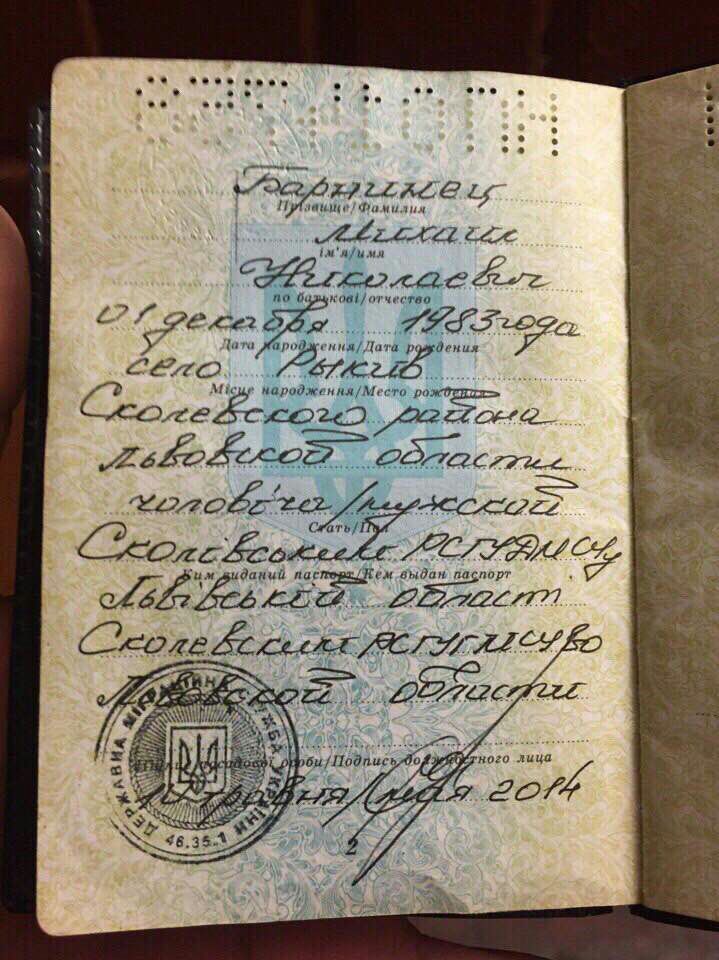 Барнинец
Прізвище/Фамилия
Михаил
ім'я/имя
Николаевич
по батькові/отчество
01 декабря 1983 года
Дата народження/Дата рождения
село Рыкив
Місце народження/Место рождения
Сколевского района
Львовской области
чоловіча/мужской
Стать/Пол
Сколівським РСГУДМСУ у
Ким виданий паспорт/Кем выдан паспорт
Львівській області
Сколевским РСГУГМСУ во
Львовской области
Підпис посадової особи/Подпись должностного лица
травня/мая 2014
ДЕРЖАВНА МІГРАЦІЙНА СЛУЖБА УКРАЇНИ
46.35.1
2